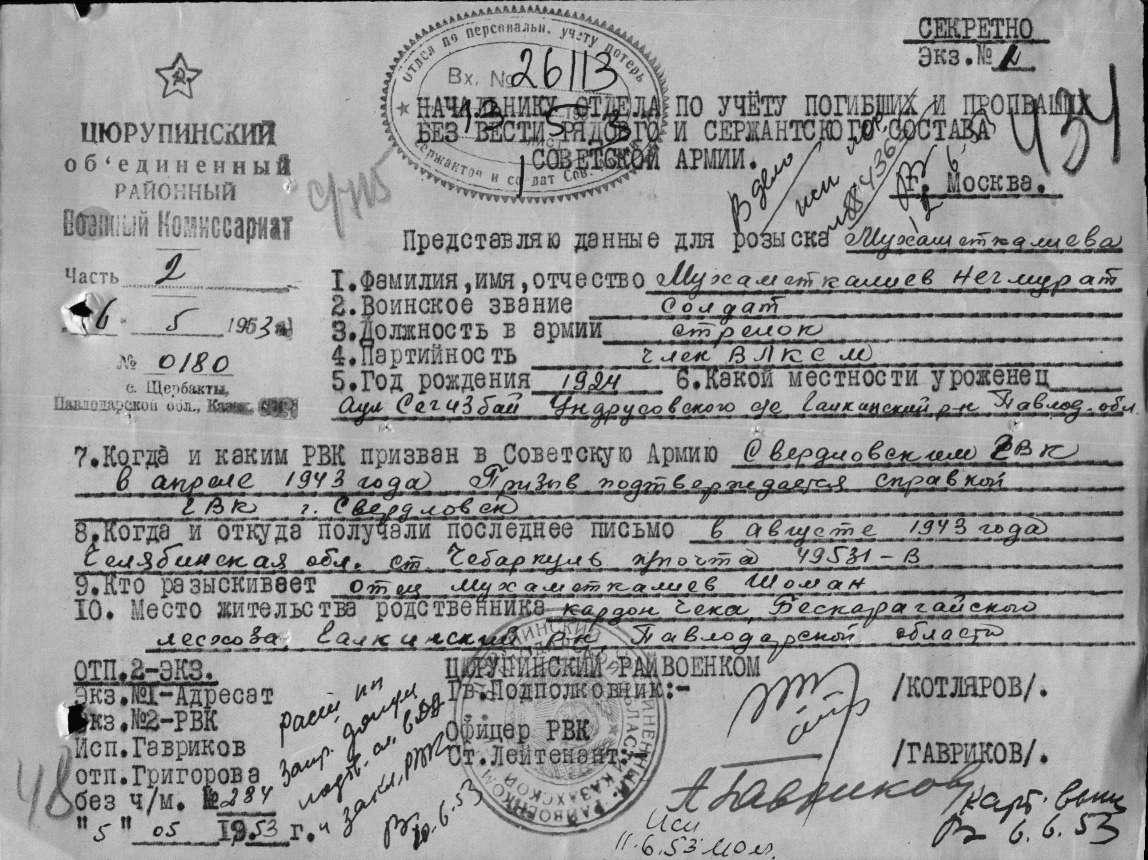 СЕКРЕТНО
Экз.№ 1
Отдел по персональн. учету потерь
сержантов и солдат Сов.
Вх. № 26113
434
НАЧАЛЬНИКУ ОТДЕЛА ПО УЧЁТУ ПОГИБШИХ И ПРОПВАШИХ
БЕЗ ВЕСТИ РЯДОВОГО И СЕРЖАНТСКОГО СОСТАВА
СОВЕТСКОЙ АРМИИ.
г. Москва.
В дело
ЦЮРУПИНСКИЙ
об'единенный
РАЙОННЫЙ
Военный Комиссариат
Часть 2
6 5 1953
№ 0180
с. Щербакты,
Павлодарской обл., Казах. ССР
Представляю данные для розыска Мухаметкалиева
1.Фамилия,имя,отчество Мухаметкалиев Негмурат
2.Воинское звание солдат
3.Должность в армии стрелок
4.Партийность член ВЛКСМ
5.Год рождения 1924 6.Какой местности уроженец
Аул Сегизбай Ундрусовского с/с Галкинский р-н Павлод. обл.
7.Когда и каким РВК призван в Советскую Армию Свердловским ГВК
в апреле 1943 года Призыв подтверждается справкой
ГВК г. Свердловск
8.Когда и откуда получали последнее письмо в августе 1943 года
Челябинская обл. ст. Чебаркуль п/почта 49531-В
9.Кто разыскивает отец Мухаметкалиев Шоман
10. Место жительства родственника кардон Чека, Бескарагайского
лесхоза, Галкинский р-н, Павлодарской области
ОТП.2-ЭКЗ.
Экз.№1-Адресат
Экз.№2-РВК
Исп.Гавриков
отп.Григорова
без ч/м. № 284
"5" 05 1953 г.
48
ЦЮРУПИНСКИЙ РАЙВОЕНКОМ
Гв.Подполковник:- /КОТЛЯРОВ/.
Офицер РВК
Ст.Лейтенант. /ГАВРИКОВ/.
А Гавриков
10.6.53
11.6.53
6.6.53